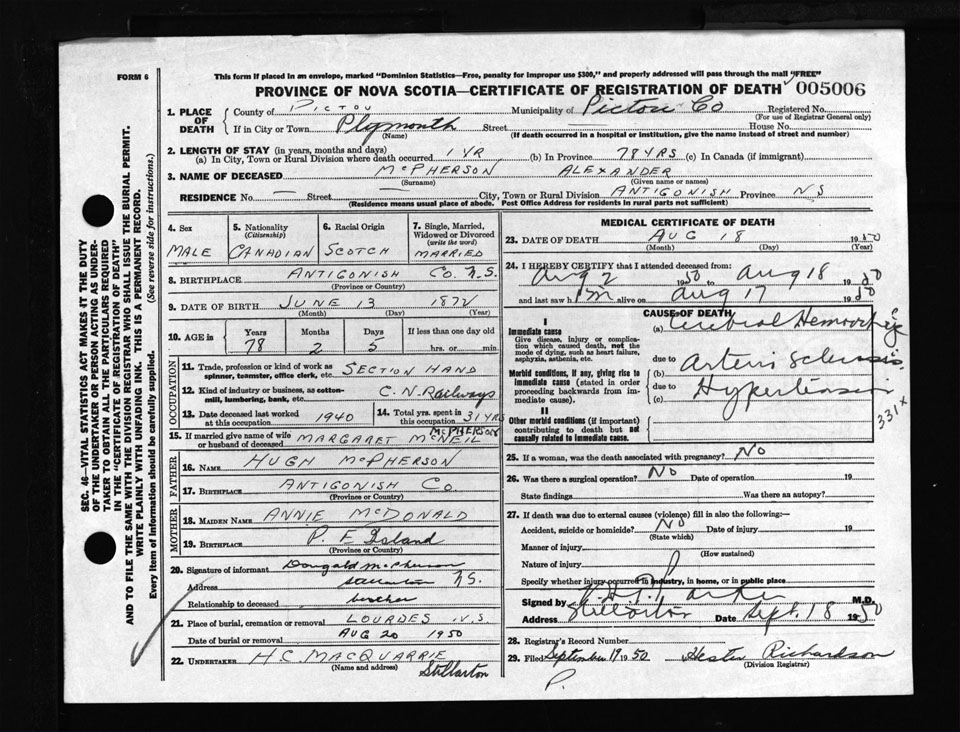 FORM 6
This form if placed in an envelope, marked "Dominion Statistics—Free, penalty for improper use $300," and properly addressed will pass through the mail "FREE"
PROVINCE OF NOVA SCOTIA—CERTIFICATE OF REGISTRATION OF DEATH 005006
1. PLACE OF DEATH County of PICTOU Municipality of Pictou Co Registered No.
(For use of Registrar General only)
If in City or Town Plymouth Street House No.
(Name) (If death occurred in a hospital or institution, give the name instead of street and number)
2. LENGTH OF STAY (in years, months and days)
(a) In City, Town or Rural Division where death occurred 1 YR (b) In Province 78 YRS (c) In Canada (if immigrant)
3. NAME OF DECEASED McPHERSON ALEXANDER
(Surname) (Given name or names)
RESIDENCE No. — Street — City, Town or Rural Division ANTIGONISH Province NS
(Residence means usual place of abode. Post Office Address for residents in rural parts not sufficient)
4. Sex 5. Nationality (Citizenship) 6. Racial Origin 7. Single, Married, Widowed or Divorced (write the word)
MALE CANADIAN SCOTCH MARRIED
8. BIRTHPLACE ANTIGONISH Co. N.S.
(Province or Country)
9. DATE OF BIRTH JUNE 13 1872
(Month) (Day) (Year)
10. AGE in Years Months Days If less than one day old
78 2 5 hrs. or min.
OCCUPATION
11. Trade, profession or kind of work as spinner, teamster, office clerk, etc. SECTION HAND
12. Kind of industry or business, as cotton-mill, lumbering, bank, etc. C.N. Railways
13. Date deceased last worked at this occupation 1940 14. Total yrs. spent in this occupation 31 YRS
15. If married give name of wife or husband of deceased MARGARET McNEIL McPHERSON
FATHER
16. NAME HUGH McPHERSON
17. BIRTHPLACE ANTIGONISH Co.
(Province or Country)
MOTHER
18. MAIDEN NAME ANNIE McDONALD
19. BIRTHPLACE P. E Island
(Province or Country)
20. Signature of informant Dougald McPherson
Address Stellarton N.S.
Relationship to deceased brother
21. Place of burial, cremation or removal LOURDES N.S.
Date of burial or removal AUG 20 1950
22. UNDERTAKER H.C. MACQUARRIE
(Name and address) Stellarton
MEDICAL CERTIFICATE OF DEATH
23. DATE OF DEATH AUG 18 1950
(Month) (Day) (Year)
24. I HEREBY CERTIFY that I attended deceased from:
Aug 2 1950 to Aug 18 1950
and last saw him alive on Aug 17 1950
CAUSE OF DEATH
I
Immediate cause
Give disease, injury or complication which caused death, not the mode of dying, such as heart failure, asphyxia, asthenia, etc.
(a) Cerebral Hemorrhage
due to
Morbid conditions, if any, giving rise to immediate cause (stated in order proceeding backwards from immediate cause).
(b) Arterio Sclerosis
due to
(c) Hypertension
331X
II
Other morbid conditions (if important) contributing to death but not causally related to immediate cause.
25. If a woman, was the death associated with pregnancy? No
26. Was there a surgical operation? No Date of operation 19
State findings Was there an autopsy?
27. If death was due to external causes (violence) fill in also the following:—
Accident, suicide or homicide? No Date of injury 19
(State which)
Manner of injury
(How sustained)
Nature of injury
Specify whether injury occurred in industry, in home, or in public place
Signed by Parker M.D.
Address Stellarton Date Sept. 18 1950
28. Registrar's Record Number
29. Filed September 19 1950 Hester Richardson
(Division Registrar)
P.
SEC. 46—VITAL STATISTICS ACT MAKES IT THE DUTY
OF THE UNDERTAKER OR PERSON ACTING AS UNDER-
TAKER TO OBTAIN ALL THE PARTICULARS REQUIRED
IN THE "CERTIFICATE OF REGISTRATION OF DEATH"
AND TO FILE THE SAME WITH THE DIVISION REGISTRAR WHO SHALL ISSUE THE BURIAL PERMIT.
WRITE PLAINLY WITH UNFADING INK. THIS IS A PERMANENT RECORD.
Every item of information should be carefully supplied. (See reverse side for instructions.)